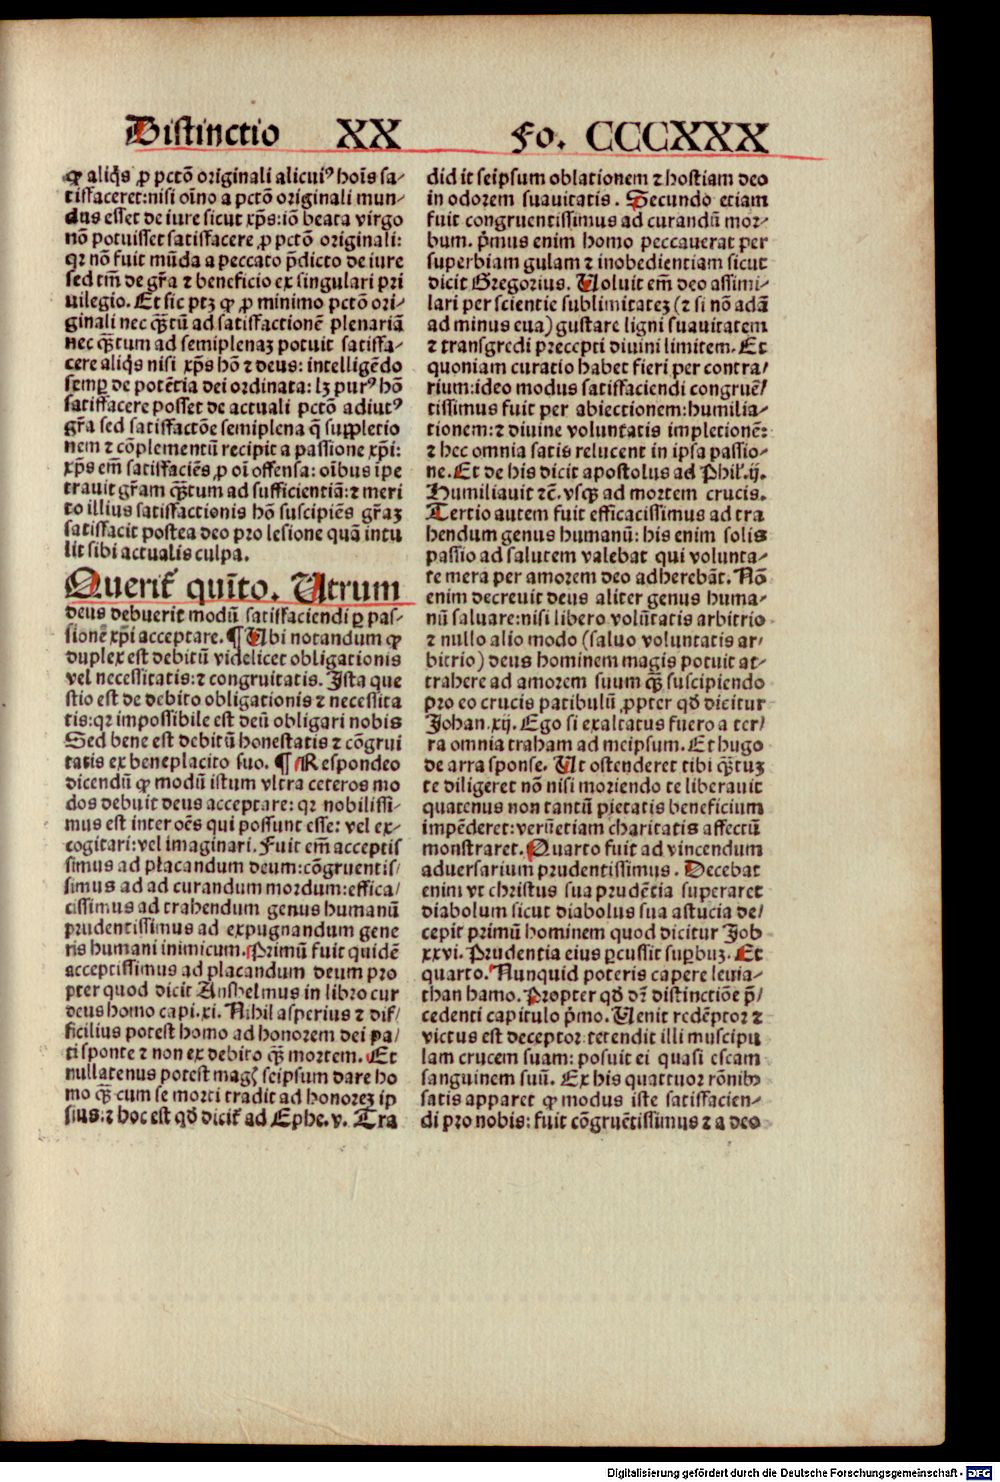 Distinctio XX Fo. CCCXXX
ꝙ aliq̃s ꝓ pctõ originali alicuiꝰ hoĩs sa⸗
tisfaceret: nisi oĩno a pctõ originali mun⸗
dus esset de iure sicut xp̃s: iõ beata virgo
nõ potuisset satisfacere ꝓ pctõ originali:
qꝛ nõ fuit mũda a peccato p̃dicto de iure
sed tm̃ de gr̃a ⁊ beneficio ex singulari pri
uilegio. Et sic ptꝫ ꝙ ꝓ minimo pctõ ori⸗
ginali nec qͣ̃tũ ad satisfactionẽ plenariã
nec qͣ̃tum ad semiplenaꝫ potuit satisfa⸗
cere aliq̃s nisi xp̃s hõ ⁊ deus: intelligẽdo
semꝑ de potẽtia dei ordinata: lꝫ purꝰ hõ
satisfacere posset de actuali pctõ adiutꝰ
gr̃a sed satisfactõe semiplena q̃ suppletio
nem ⁊ cõplementũ recipit a passione xp̃i:
xp̃s em̃ satisfaciẽs ꝓ oĩ offensa: oĩbus ipe
trauit gr̃am qͣ̃tum ad sufficientiã: ⁊ meri
to illius satisfactionis hõ suscipiẽs gr̃aꝫ
satisfacit postea deo pro lesione quã intu
lit sibi actualis culpa.
Querit᷑ quĩto. Utrum
deus debuerit modũ satisfaciendi ꝑ pas⸗
sionẽ xp̃i acceptare. ¶ Ubi notandum ꝙ
duplex est debitũ videlicet obligationis
vel necessitatis: ⁊ congruitatis. Ista que
stio est de debito obligationis ⁊ necessita
tis: qꝛ impossibile est deũ obligari nobis
Sed bene est debitũ honestatis ⁊ cõgrui
tatis ex beneplacito suo. ¶ Respondeo
dicendũ ꝙ modũ istum vltra ceteros mo
dos debuit deus acceptare: qꝛ nobilissi⸗
mus est inter oẽs qui possunt esse: vel ex⸗
cogitari: vel imaginari. Fuit em̃ acceptis
simus ad placandum deum: cõgruentis⸗
simus ad ad curandum mordum: effica⸗
cissimus ad trahendum genus humanũ
prudentissimus ad expugnandum gene
ris humani inimicum. Primũ fuit quidẽ
acceptissimus ad placandum deum pro
pter quod dicit Anshelmus in libro cur
deus homo capi. xi. Nihil asperius ⁊ dif⸗
ficilius potest homo ad honorem dei pa⸗
ti sponte ⁊ non ex debito qͣ̃ mortem. Et
nullatenus potest mag̃ seipsum dare ho
mo qͣ̃ cum se morti tradit ad honoreꝫ ip
sius: ⁊ hoc est qð dicit᷑ ad Ephe. v. Tra
did it seipsum oblationem ⁊ hostiam deo
in odorem suauitatis. Secundo etiam
fuit congruentissimus ad curandũ mor⸗
bum. p̃mus enim homo peccauerat per
superbiam gulam ⁊ inobedientiam sicut
dicit Gregorius. Uoluit em̃ deo assimi⸗
lari per scientie sublimitateꝫ (⁊ si nõ adã
ad minus eua) gustare ligni suauitatem
⁊ transgredi precepti diuini limitem. Et
quoniam curatio habet fieri per contra⸗
rium: ideo modus satisfaciendi congruẽ⸗
tissimus fuit per abiectionem: humilia⸗
tionem: ⁊ diuine voluntatis impletionẽ:
⁊ hec omnia satis relucent in ipsa passio⸗
ne. Et de his dicit apostolus ad Phil̃. ij.
Humiliauit ⁊c̃. vsqꝫ ad mortem crucis.
Tertio autem fuit efficacissimus ad tra
hendum genus humanũ: his enim solis
passio ad salutem valebat qui volunta⸗
te mera per amorem deo adherebãt. Nõ
enim decreuit deus aliter genus huma⸗
nũ saluare: nisi libero volũtatis arbitrio
⁊ nullo alio modo (saluo voluntatis ar⸗
bitrio) deus hominem magis potuit at⸗
trahere ad amorem suum qͣ̃ suscipiendo
pro eo crucis patibulũ ꝓpter qð dicitur
Johan. xij. Ego si exaltatus fuero a ter⸗
ra omnia traham ad meipsum. Et hugo
de arra sponse. Ut ostenderet tibi qͣ̃tuꝫ
te diligeret nõ nisi moriendo te liberauit
quatenus non tantũ pietatis beneficium
impẽderet: verũetiam charitatis affectũ
monstraret. Quarto fuit ad vincendum
aduersarium prudentissimus. Decebat
enim vt christus sua prudẽtia superaret
diabolum sicut diabolus sua astucia de⸗
cepit primũ hominem quod dicitur Job
xxvi. Prudentia eius ꝑcussit suꝑbuꝫ. Et
quarto. Nunquid poteris capere leuia⸗
than hamo. Propter qð dr̃ distinctiõe p̃⸗
cedenti capitulo p̃mo. Uenit redẽptor ⁊
victus est deceptor: tetendit illi muscipu
lam crucem suam: posuit ei quasi escam
sanguinem suũ. Ex his quattuor rõnibꝰ
satis apparet ꝙ modus iste satisfacien⸗
di pro nobis: fuit cõgruẽtissimus ⁊ a deo
Digitalisierung gefördert durch die Deutsche Forschungsgemeinschaft - DFG